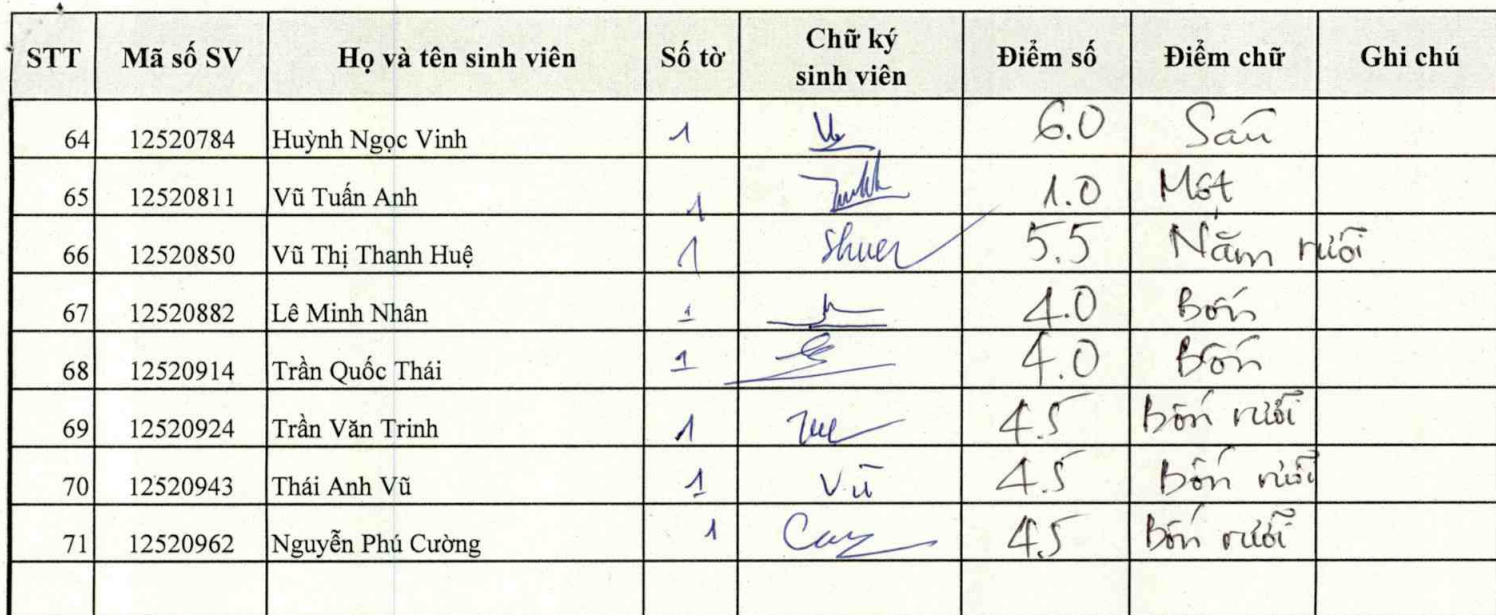 STT Mã số SV Họ và tên sinh viên Số tờ Chữ ký sinh viên Điểm số Điểm chữ Ghi chú
64 12520784 Huỳnh Ngọc Vinh 1 6.0 Sáu
65 12520811 Vũ Tuấn Anh 1 1.0 Một
66 12520850 Vũ Thị Thanh Huệ 1 5.5 Năm rưỡi
67 12520882 Lê Minh Nhân 1 4.0 Bốn
68 12520914 Trần Quốc Thái 1 4.0 Bốn
69 12520924 Trần Văn Trinh 1 4.5 Bốn rưỡi
70 12520943 Thái Anh Vũ 1 Vũ 4.5 Bốn rưỡi
71 12520962 Nguyễn Phú Cường 1 4.5 Bốn rưỡi